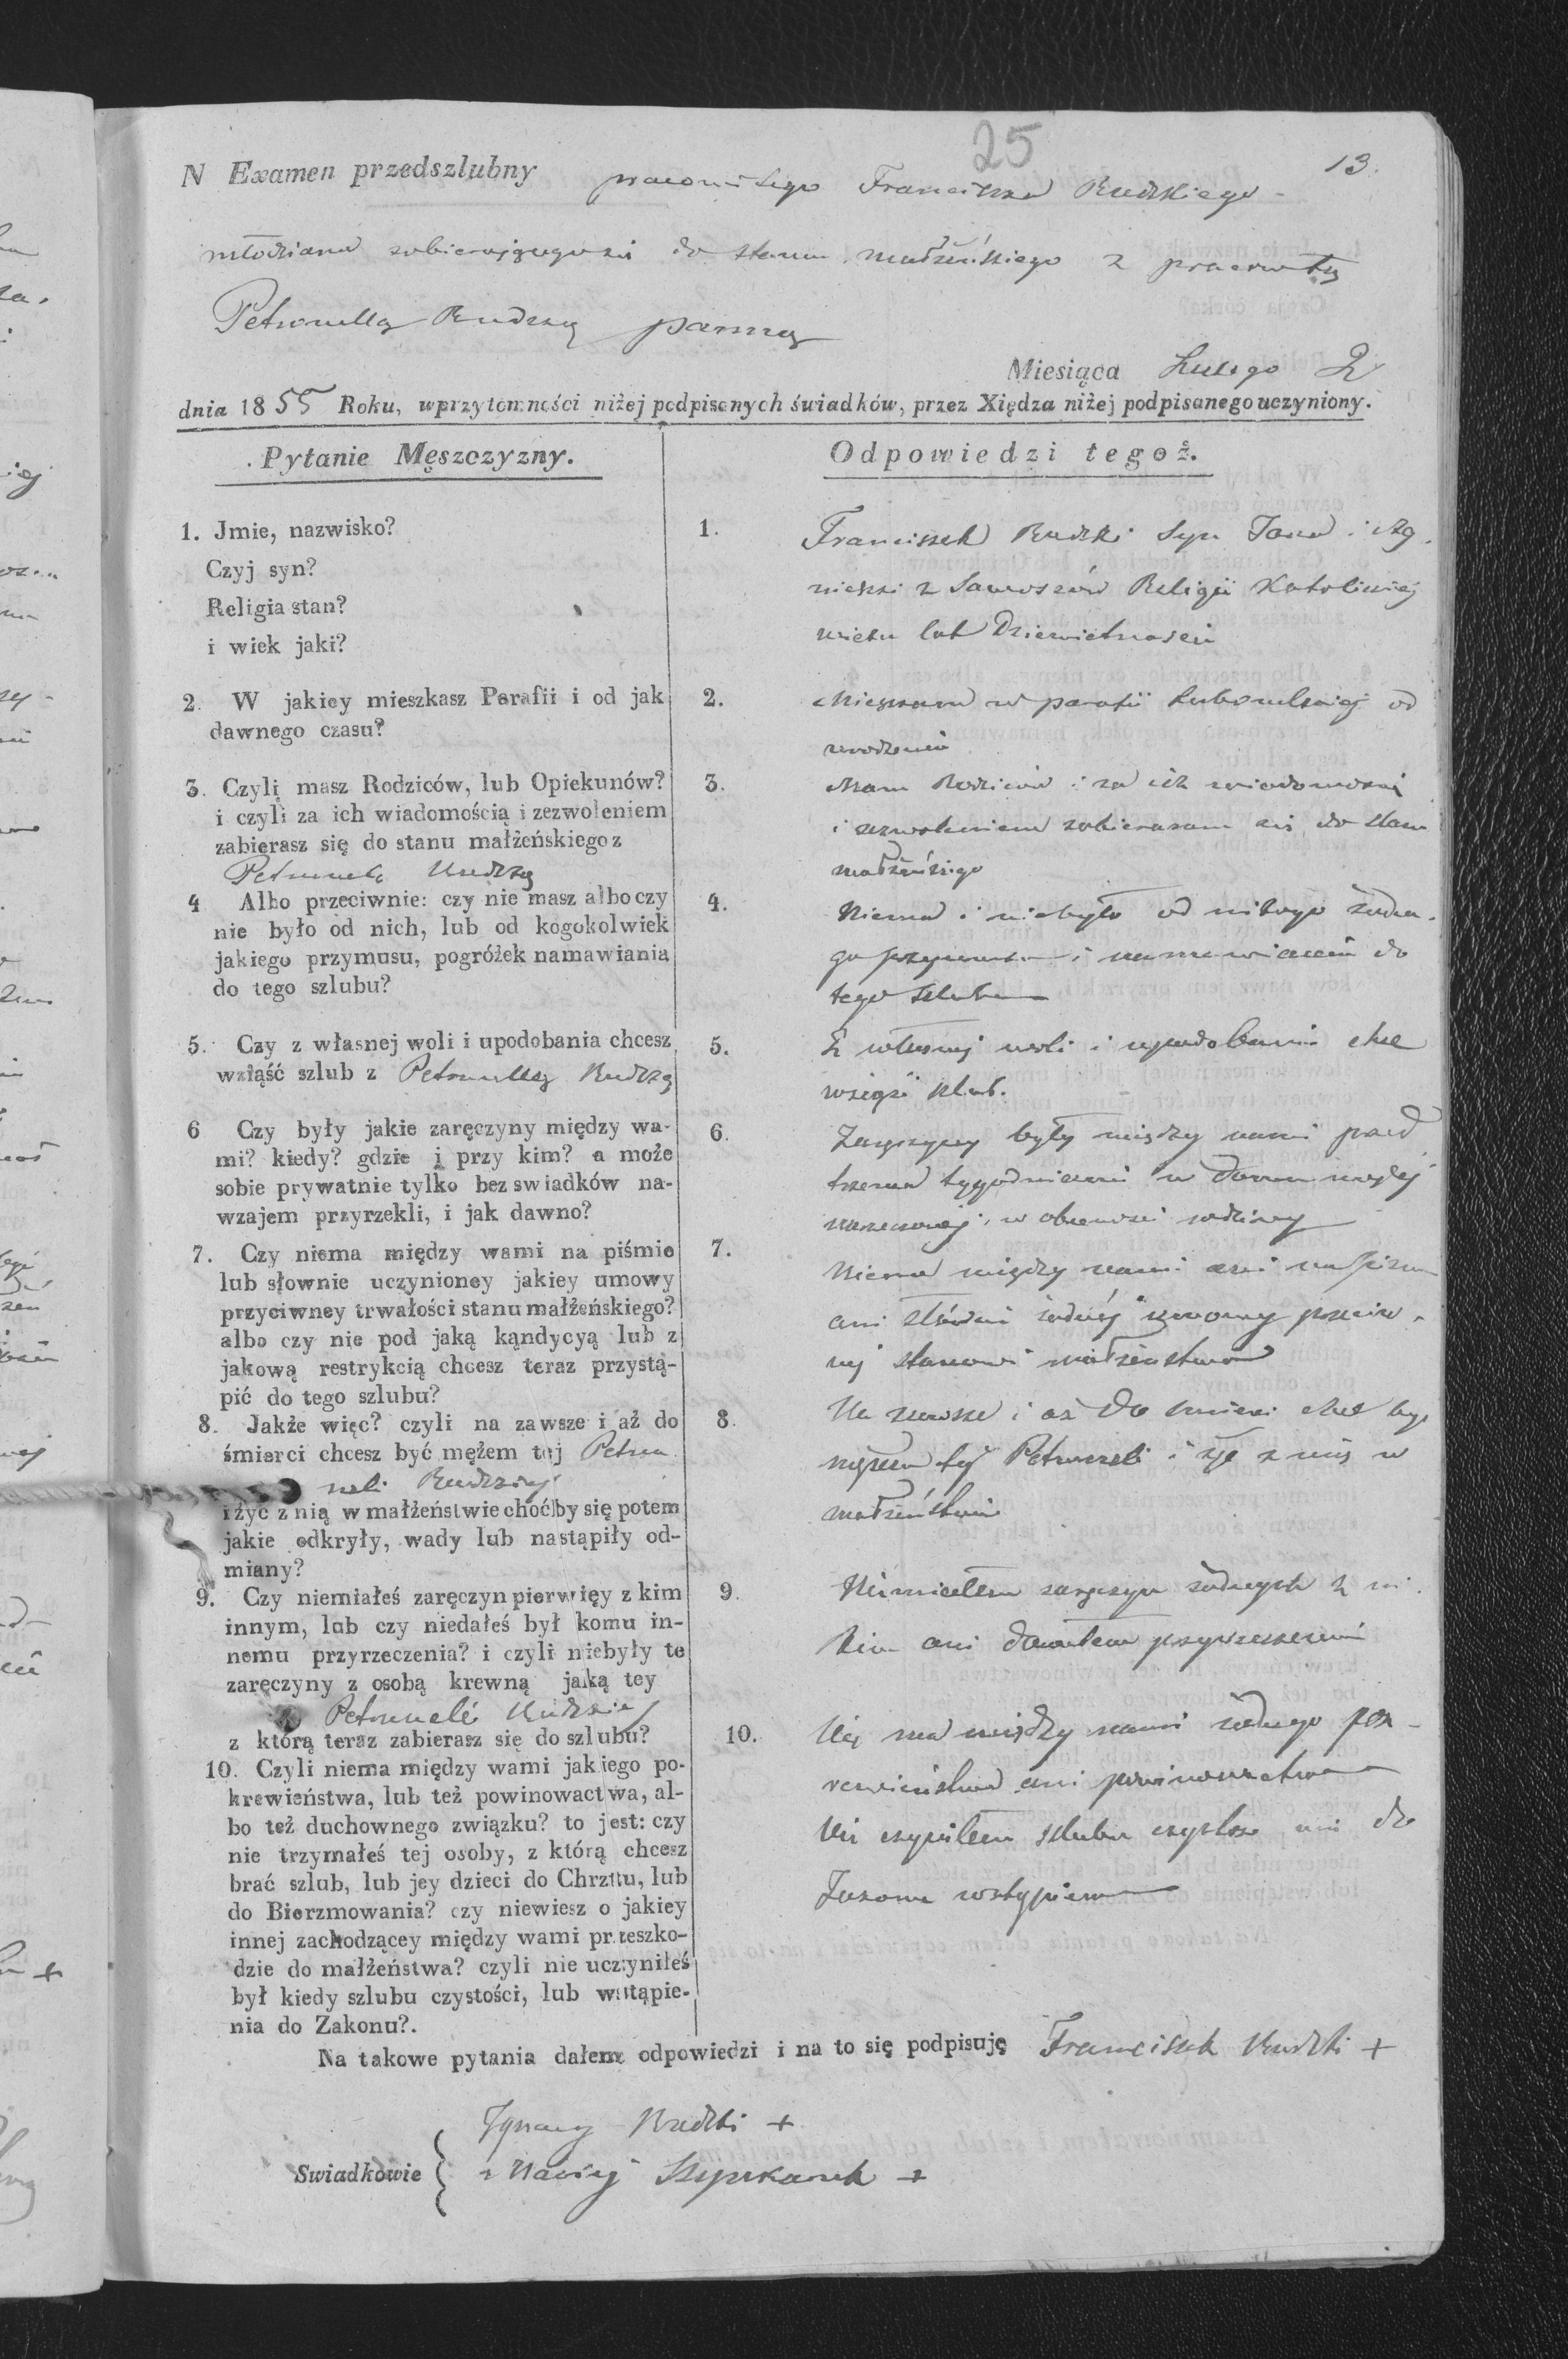 25
13.
N Examen przedszlubny pracowitego Franciszka Rudzkiego
młodziana zabierającegosię do stanu małżeńskiego z pracowitą
Petronellą Rudzką panną
Miesiąca Lutego 2
dnia 1855 Roku, wprzytomności niżej podpisanych świadków, przez Xiędza niżej podpisanego uczyniony.
Pytanie Męszczyzny.
Odpowiedzi tegoż.
1. Jmie, nazwisko?
Czyj syn?
Religia stan?
i wiek jaki?
1. Franciszek Rudzki Syn Jana i Ag-
nieszki z Religii Katolickiej
wieku lat Dziewietnascie
2. W jakiey mieszkasz Parafii i od jak
dawnego czasu?
2. Mieszkam w parafii od
urodzenia
3. Czyli masz Rodziców, lub Opiekunów?
i czyli za ich wiadomością i zezwoleniem
zabierasz się do stanu małżeńskiego z
Petronelą Rudzką
3. Mam Rodziców i za ich wiadomością
i zezwoleniem zabieram się do stanu
małżeńskiego
4 Albo przeciwnie: czy nie masz albo czy
nie było od nich, lub od kogokolwiek
jakiego przymusu, pogróżek namawiania
do tego szlubu?
4. Niema i niebyło od nikogo żadne-
go przymusu i namawiania do
tego szlubu
5. Czy z własnej woli i upodobania chcesz
wziąść szlub z Petronellą Rudzką
5. Z własnej woli i upodobania chce
wziąść szlub.
6 Czy były jakie zaręczyny między wa-
mi? kiedy? gdzie i przy kim? a może
sobie prywatnie tylko bez swiadków na-
wzajem przyrzekli, i jak dawno?
6. Zaręczyny były między nami przed
trzema tygodniami w domu mojej
narzeczonej w obecności rodziny
7. Czy niema między wami na piśmie
lub słownie uczynioney jakiey umowy
przyciwney trwałości stanu małżeńskiego?
albo czy nie pod jaką kąndycyą lub z
jakową restrykcią chcesz teraz przystą-
pić do tego szlubu?
7. Niema między nami ani na piśmie
ani słownie żadnej umowy przeciw-
nej stanowi małżeństwa
8. Jakże więc? czyli na zawsze i aż do
śmierci chcesz być mężem tej Petro
neli Rudzkiej
i żyć z nią w małżeństwie choćby się potem
jakie odkryły, wady lub nastąpiły od-
miany?
8. Na zawsze i aż do śmierci chce być
mężem tej Petroneli i żyć z nią w
małżeństwie
9. Czy niemiałeś zaręczyn pierwięy z kim
innym, lub czy niedałeś był komu in-
nemu przyrzeczenia? i czyli niebyły te
zaręczyny z osobą krewną jaką tey
Petroneli Rudzkiej
z którą teraz zabierasz się do szlubu?
9. Niemiałem zaręczyn żadnych z ni-
kim ani dawałem przyrzeczenia
10. Czyli niema między wami jakiego po-
krewieństwa, lub też powinowactwa, al-
bo też duchownego związku? to jest: czy
nie trzymałeś tej osoby, z którą chcesz
brać szlub, lub jey dzieci do Chrztu, lub
do Bierzmowania? czy niewiesz o jakiey
innej zachodzącey między wami przeszko-
dzie do małżeństwa? czyli nie uczyniłeś
był kiedy szlubu czystości, lub wstąpie-
nia do Zakonu?.
10. Nie ma między nami żadnego pok-
rewieństwa ani powinowactwa
Nie czyniłem szlubu ani do
Zakonu
Na takowe pytania dałem odpowiedzi i na to się podpisuję Franciszek Rudzki +
Swiadkowie
Ignacy Rudzki +
Maciej +